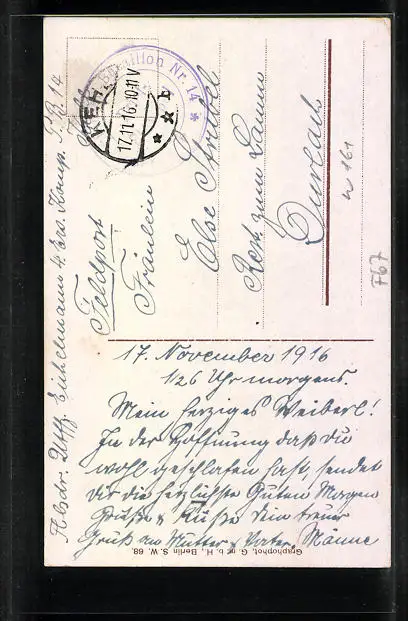 Absdr: Utffz. Eichelmann 4. Ers. Komp. P. B. 14
Bataillon Nr. 14 *
KEHL
17.11.16.10-11V
* * b
Feldpost
Fräulein
Else Strubel
Rest. zum Lamm
Durlach
w 161
F67
17. November 1916
1/26 Uhr morgens.
Mein herziges Weiberl!
In der Hoffnung daß du
wohl geschlafen hast, sendet
dir die herzlichste Guten Morgen
Grüße & Küße dein treuer
Gruß an Mutter & Vater, Männe
Graphophot. G. m. b. H., Berlin S. W. 68.